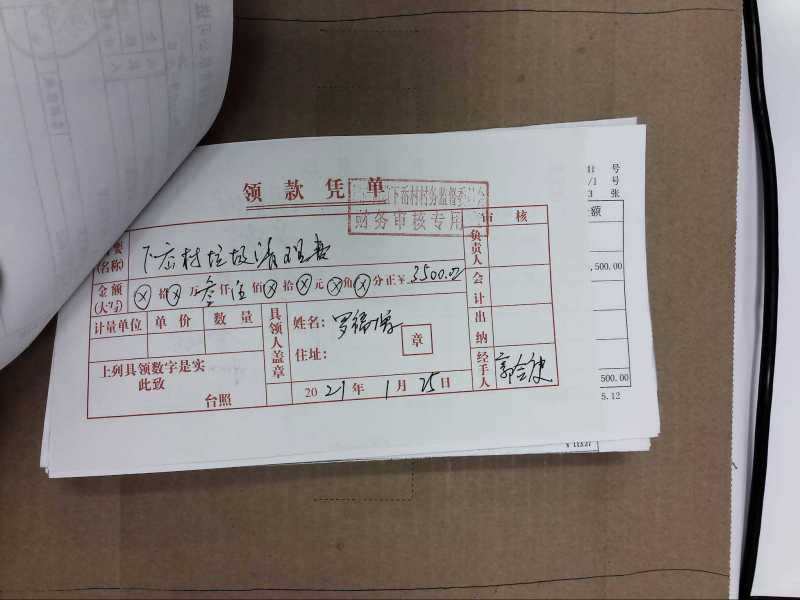 领款凭单
下岙村村务监督委员会
财务审核专用
审核
(名称)
下岙村垃圾清理费
负责人
金额(大写)
ⓧ拾ⓧ万叁仟伍佰ⓧ拾ⓧ元ⓧ角ⓧ分正¥3500.00
会计
计量单位 单价 数量
具领人盖章
姓名：罗
章
住址：
出纳
上列具领数字是实
此致
台照
2021年1月25日
经手人
号
号
张
额
,500.00
500.00
5.12